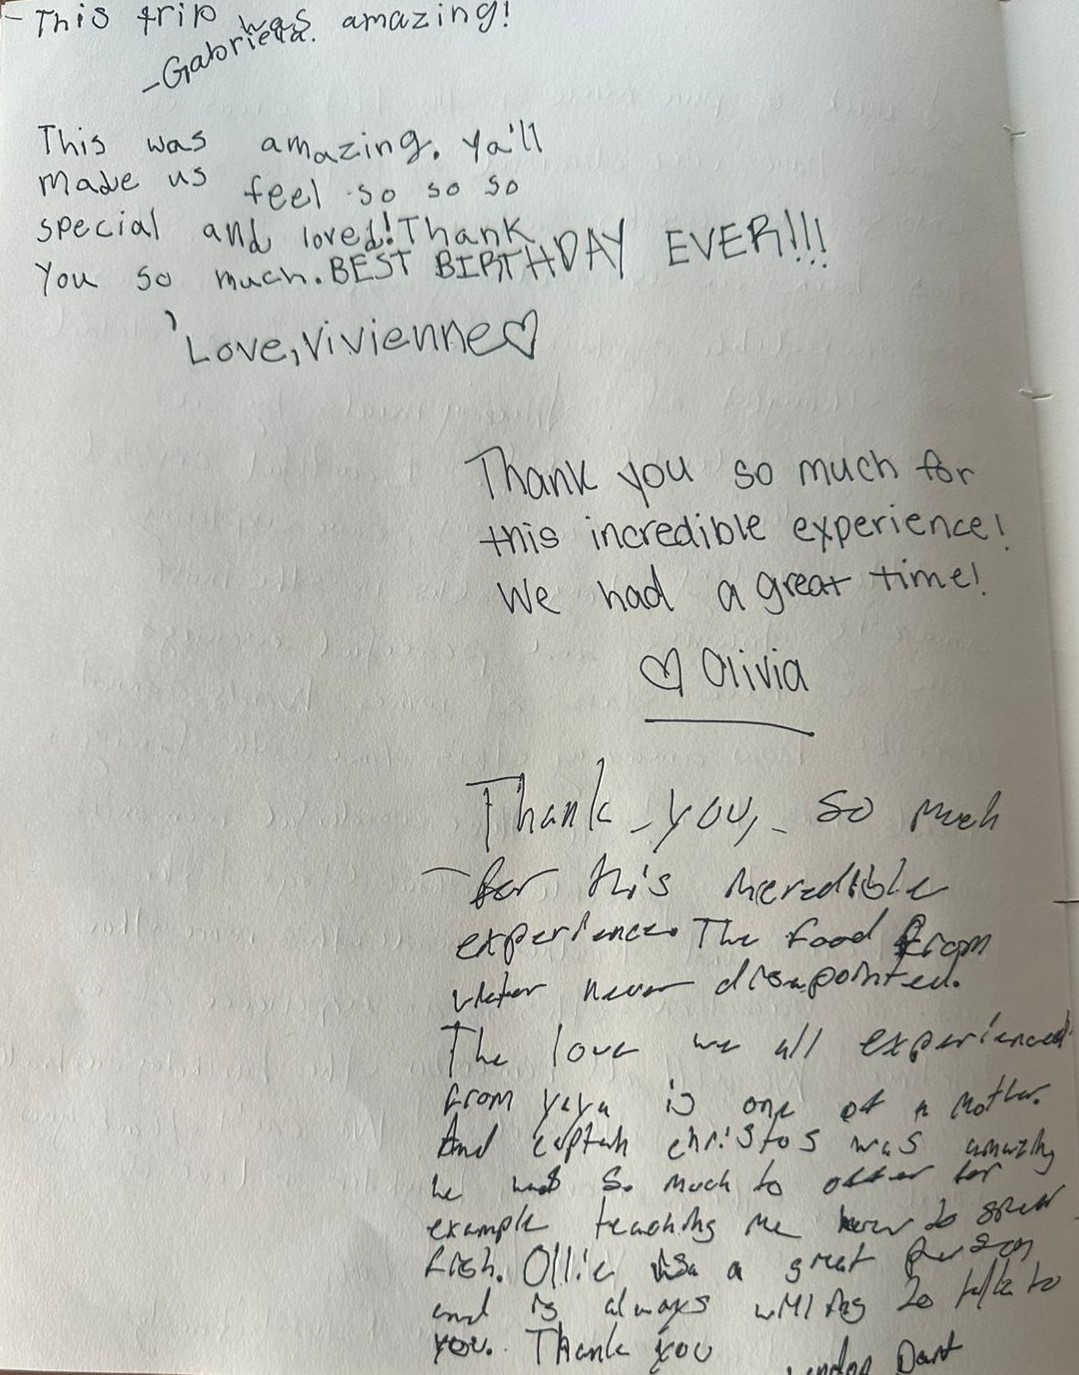 - This trip was amazing!
-Gabriela.
This was amazing. Ya'll
made us feel so so so
special and loved! Thank
You so much. BEST BIRTHDAY EVER!!!
Love, Vivienne♡
Thank you so much for
this incredible experience!
We had a great time!
♡ Olivia
Thank you, so much
for this incredible
experience. The food from
never disapointed.
The love we all experienced
from yaya is one of a mother.
And captain christos was amazing
he had so much to offer for
example teaching me how to spear
fish. Ollie is a great person
and is always willing to talk to
you. Thank you